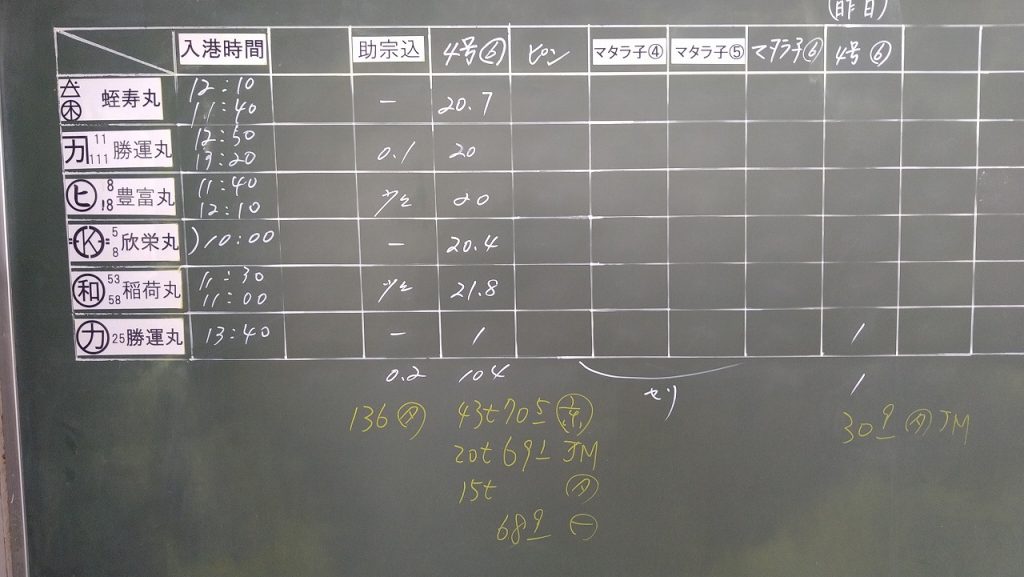 (昨日)
入港時間 助宗込 4号⑥ ピン マタラ子④ マタラ子⑤ マタラ子⑥ 4号⑥
蛭寿丸 12:10 11:40 - 20.7
11 111 勝運丸 12:50 19:20 0.1 20
ヒ 8 18 豊富丸 11:40 12:10 少々 20
K 5 8 欣栄丸 10:00 - 20.4
和 53 58 稲荷丸 11:30 11:00 少々 21.8
カ 25 勝運丸 13:40 - 1 1
0.2 104 セリ 1
136 43t705
20t691 JM 309 JM
15t
689 一